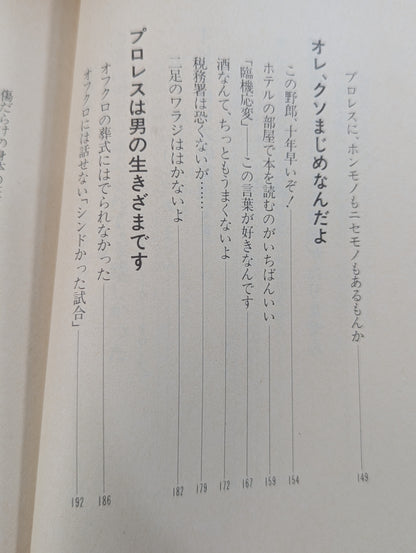 プロレスに、ホンモノもニセモノもあるもんか 149
オレ、クソまじめなんだよ
この野郎、十年早いぞ! 154
ホテルの部屋で本を読むのがいちばんいい 159
「臨機応変」――この言葉が好きなんです 167
酒なんて、ちっともうまくないよ 172
税務署は恐くないが…… 179
二足のワラジははかないよ 182
プロレスは男の生きざまです
オフクロの葬式にはでられなかった 186
オフクロには話せない「シンドかった試合」 192
傷だらけの身体